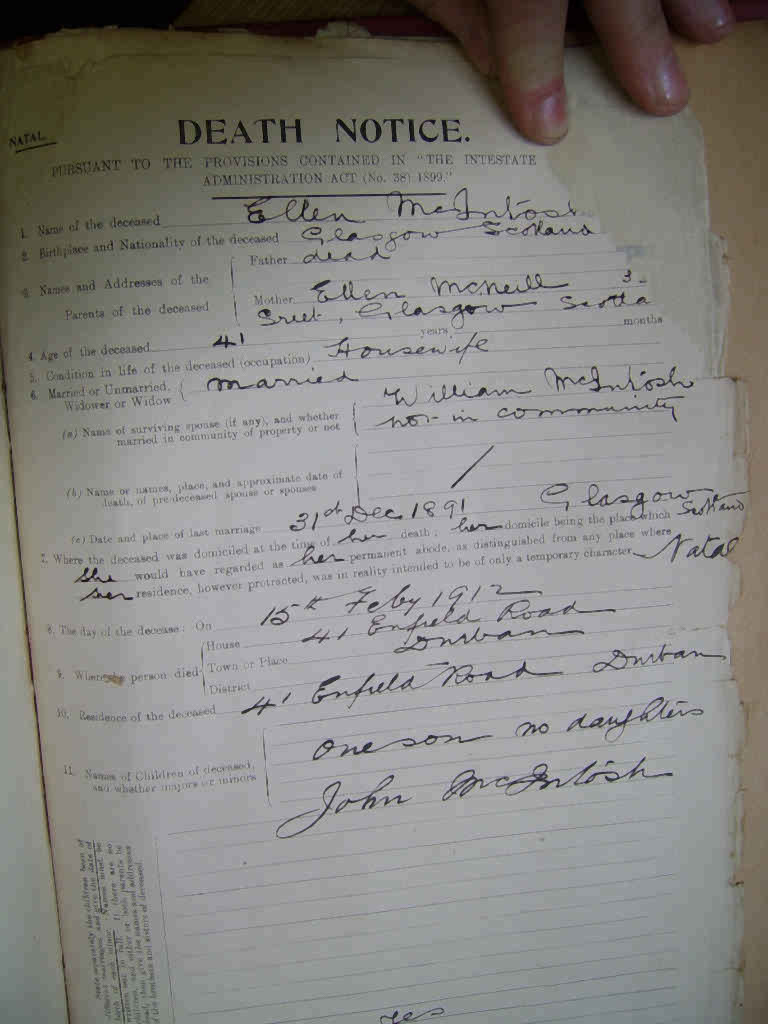 NATAL
DEATH NOTICE.
PURSUANT TO THE PROVISIONS CONTAINED IN "THE INTESTATE
ADMINISTRATION ACT (No. 38) 1899."
1. Name of the deceased Ellen McIntosh
2. Birthplace and Nationality of the deceased Glasgow Scotland
3. Names and Addresses of the
Parents of the deceased
Father dead
Mother Ellen McNeill 3
Sreet, Glasgow Scotla
4. Age of the deceased 41 years months
5. Condition in life of the deceased (occupation) Housewife
6. Married or Unmarried, Widower or Widow married
(a) Name of surviving spouse (if any), and whether
married in community of property or not
William McIntosh
not in community
(b) Name or names, place, and approximate date of
death, of pre-deceased spouse or spouses /
(c) Date and place of last marriage 31st Dec 1891 Glasgow Scotland
7. Where the deceased was domiciled at the time of her death; her domicile being the place which
she would have regarded as her permanent abode, as distinguished from any place where
her residence, however protracted, was in reality intended to be of only a temporary character Natal
8. The day of the decease: On 15th Feby 1912
9. Where the person died
House 41 Enfield Road
Town or Place Durban
District
10. Residence of the deceased 41 Enfield Road Durban
11. Names of Children of deceased,
and whether majors or minors
one son no daughters
John McIntosh
State separately the children born of
different marriages, and give the date of
birth of each minor. Names must be
written out in full. If there are no
children, and either or both parents be
dead, then give the names and addresses
of the brothers and sisters of deceased.
yes